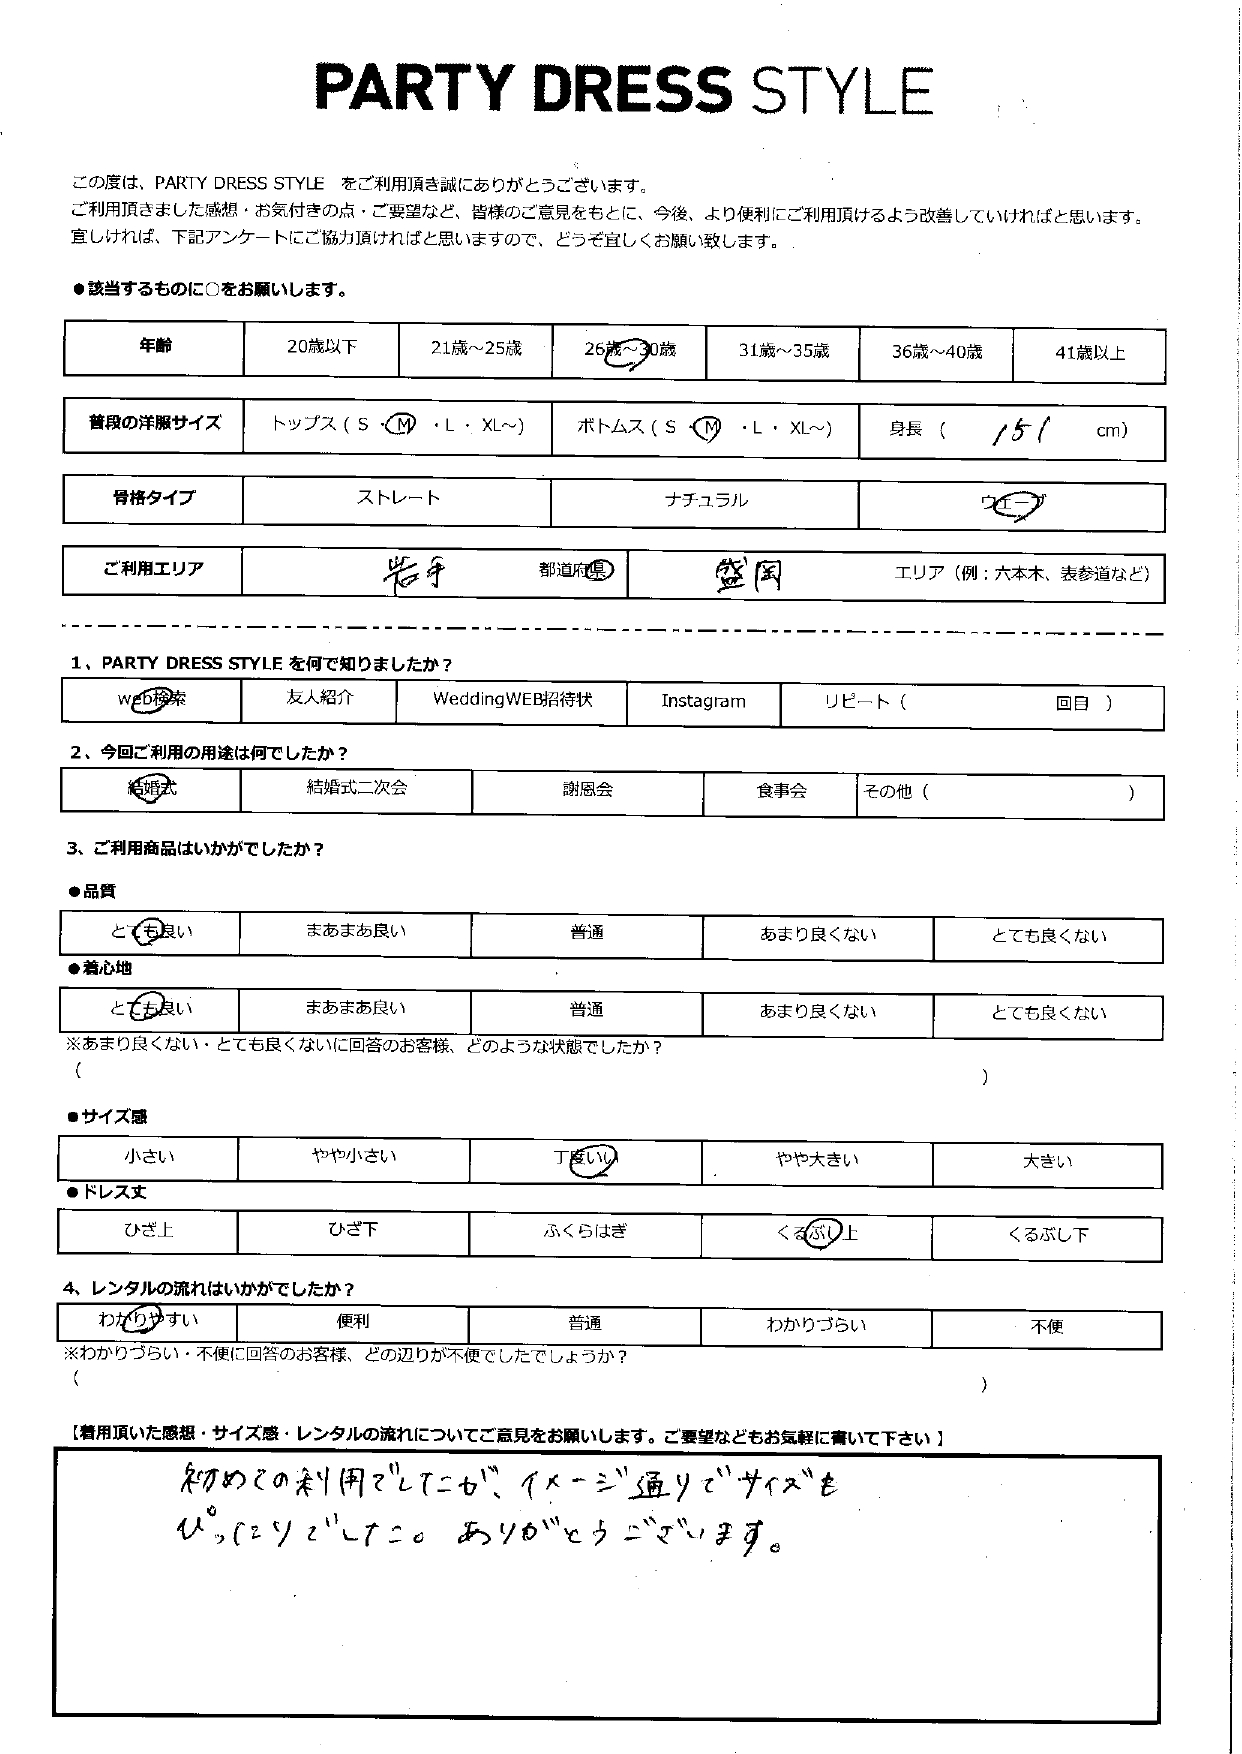 PARTY DRESS STYLE
この度は、PARTY DRESS STYLE をご利用頂き誠にありがとうございます。
ご利用頂きました感想・お気付きの点・ご要望など、皆様のご意見をもとに、今後、より便利にご利用頂けるよう改善していければと思います。
宜しければ、下記アンケートにご協力頂ければと思いますので、どうぞ宜しくお願い致します。
●該当するものに○をお願いします。
年齢 20歳以下 21歳～25歳 26歳～30歳 31歳～35歳 36歳～40歳 41歳以上
普段の洋服サイズ トップス ( S ・M ・L ・ XL～) ボトムス ( S ・M ・L ・ XL～) 身長 ( 151 cm)
骨格タイプ ストレート ナチュラル ウェーブ
ご利用エリア 岩手 都道府県 盛岡 エリア（例：六本木、表参道など）
1、PARTY DRESS STYLE を何で知りましたか？
web検索 友人紹介 WeddingWEB招待状 Instagram リピート ( 回目 )
2、今回ご利用の用途は何でしたか？
結婚式 結婚式二次会 謝恩会 食事会 その他 ( )
3、ご利用商品はいかがでしたか？
●品質
とても良い まあまあ良い 普通 あまり良くない とても良くない
●着心地
とても良い まあまあ良い 普通 あまり良くない とても良くない
※あまり良くない・とても良くないに回答のお客様、どのような状態でしたか？
( )
●サイズ感
小さい やや小さい 丁度いい やや大きい 大きい
●ドレス丈
ひざ上 ひざ下 ふくらはぎ くるぶし上 くるぶし下
4、レンタルの流れはいかがでしたか？
わかりやすい 便利 普通 わかりづらい 不便
※わかりづらい・不便に回答のお客様、どの辺りが不便でしたでしょうか？
( )
【着用頂いた感想・サイズ感・レンタルの流れについてご意見をお願いします。ご要望などもお気軽に書いて下さい】
初めての利用でしたが、イメージ通りでサイズも
ぴったりでした。ありがとうございます。